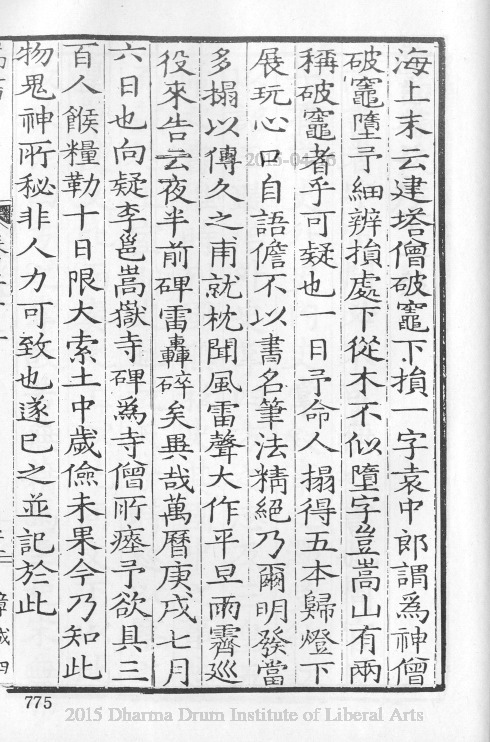 海上末云建塔僧破竈下損一字袁中郎謂爲神僧
破竈墮予細辨損處下從木不似墮字豈嵩山有兩
稱破竈者乎可疑也一日予命人搨得五本歸燈下
展玩心口自語儋不以書名筆法精絕乃爾明發當
多搨以傳久之甫就枕聞風雷聲大作平旦雨霽巡
役來告云夜半前碑雷轟碎矣異哉萬曆庚戌七月
六日也向疑李邕嵩嶽寺碑爲寺僧所瘞予欲具三
百人餱糧勒十日限大索土中歲儉未果今乃知此
物鬼神所秘非人力可致也遂已之並記於此
775
2015 Dharma Drum Institute of Liberal Arts